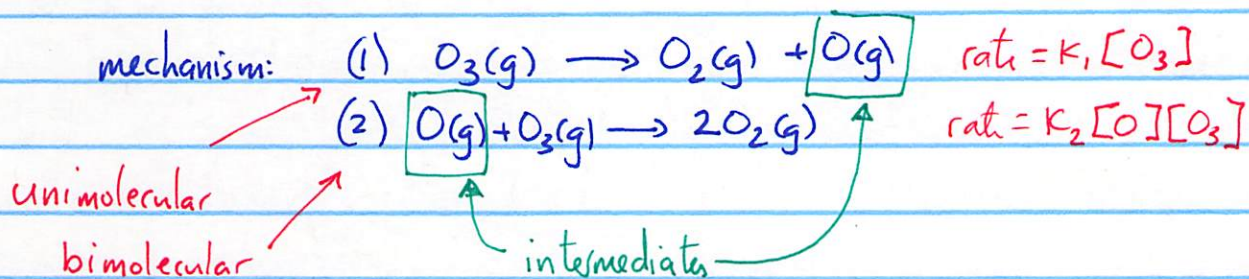 mechanism: (1) O₃(g) → O₂(g) + O(g) rate = K₁[O₃]
(2) O(g) + O₃(g) → 2O₂(g) rate = K₂[O][O₃]
unimolecular
bimolecular
intermediates